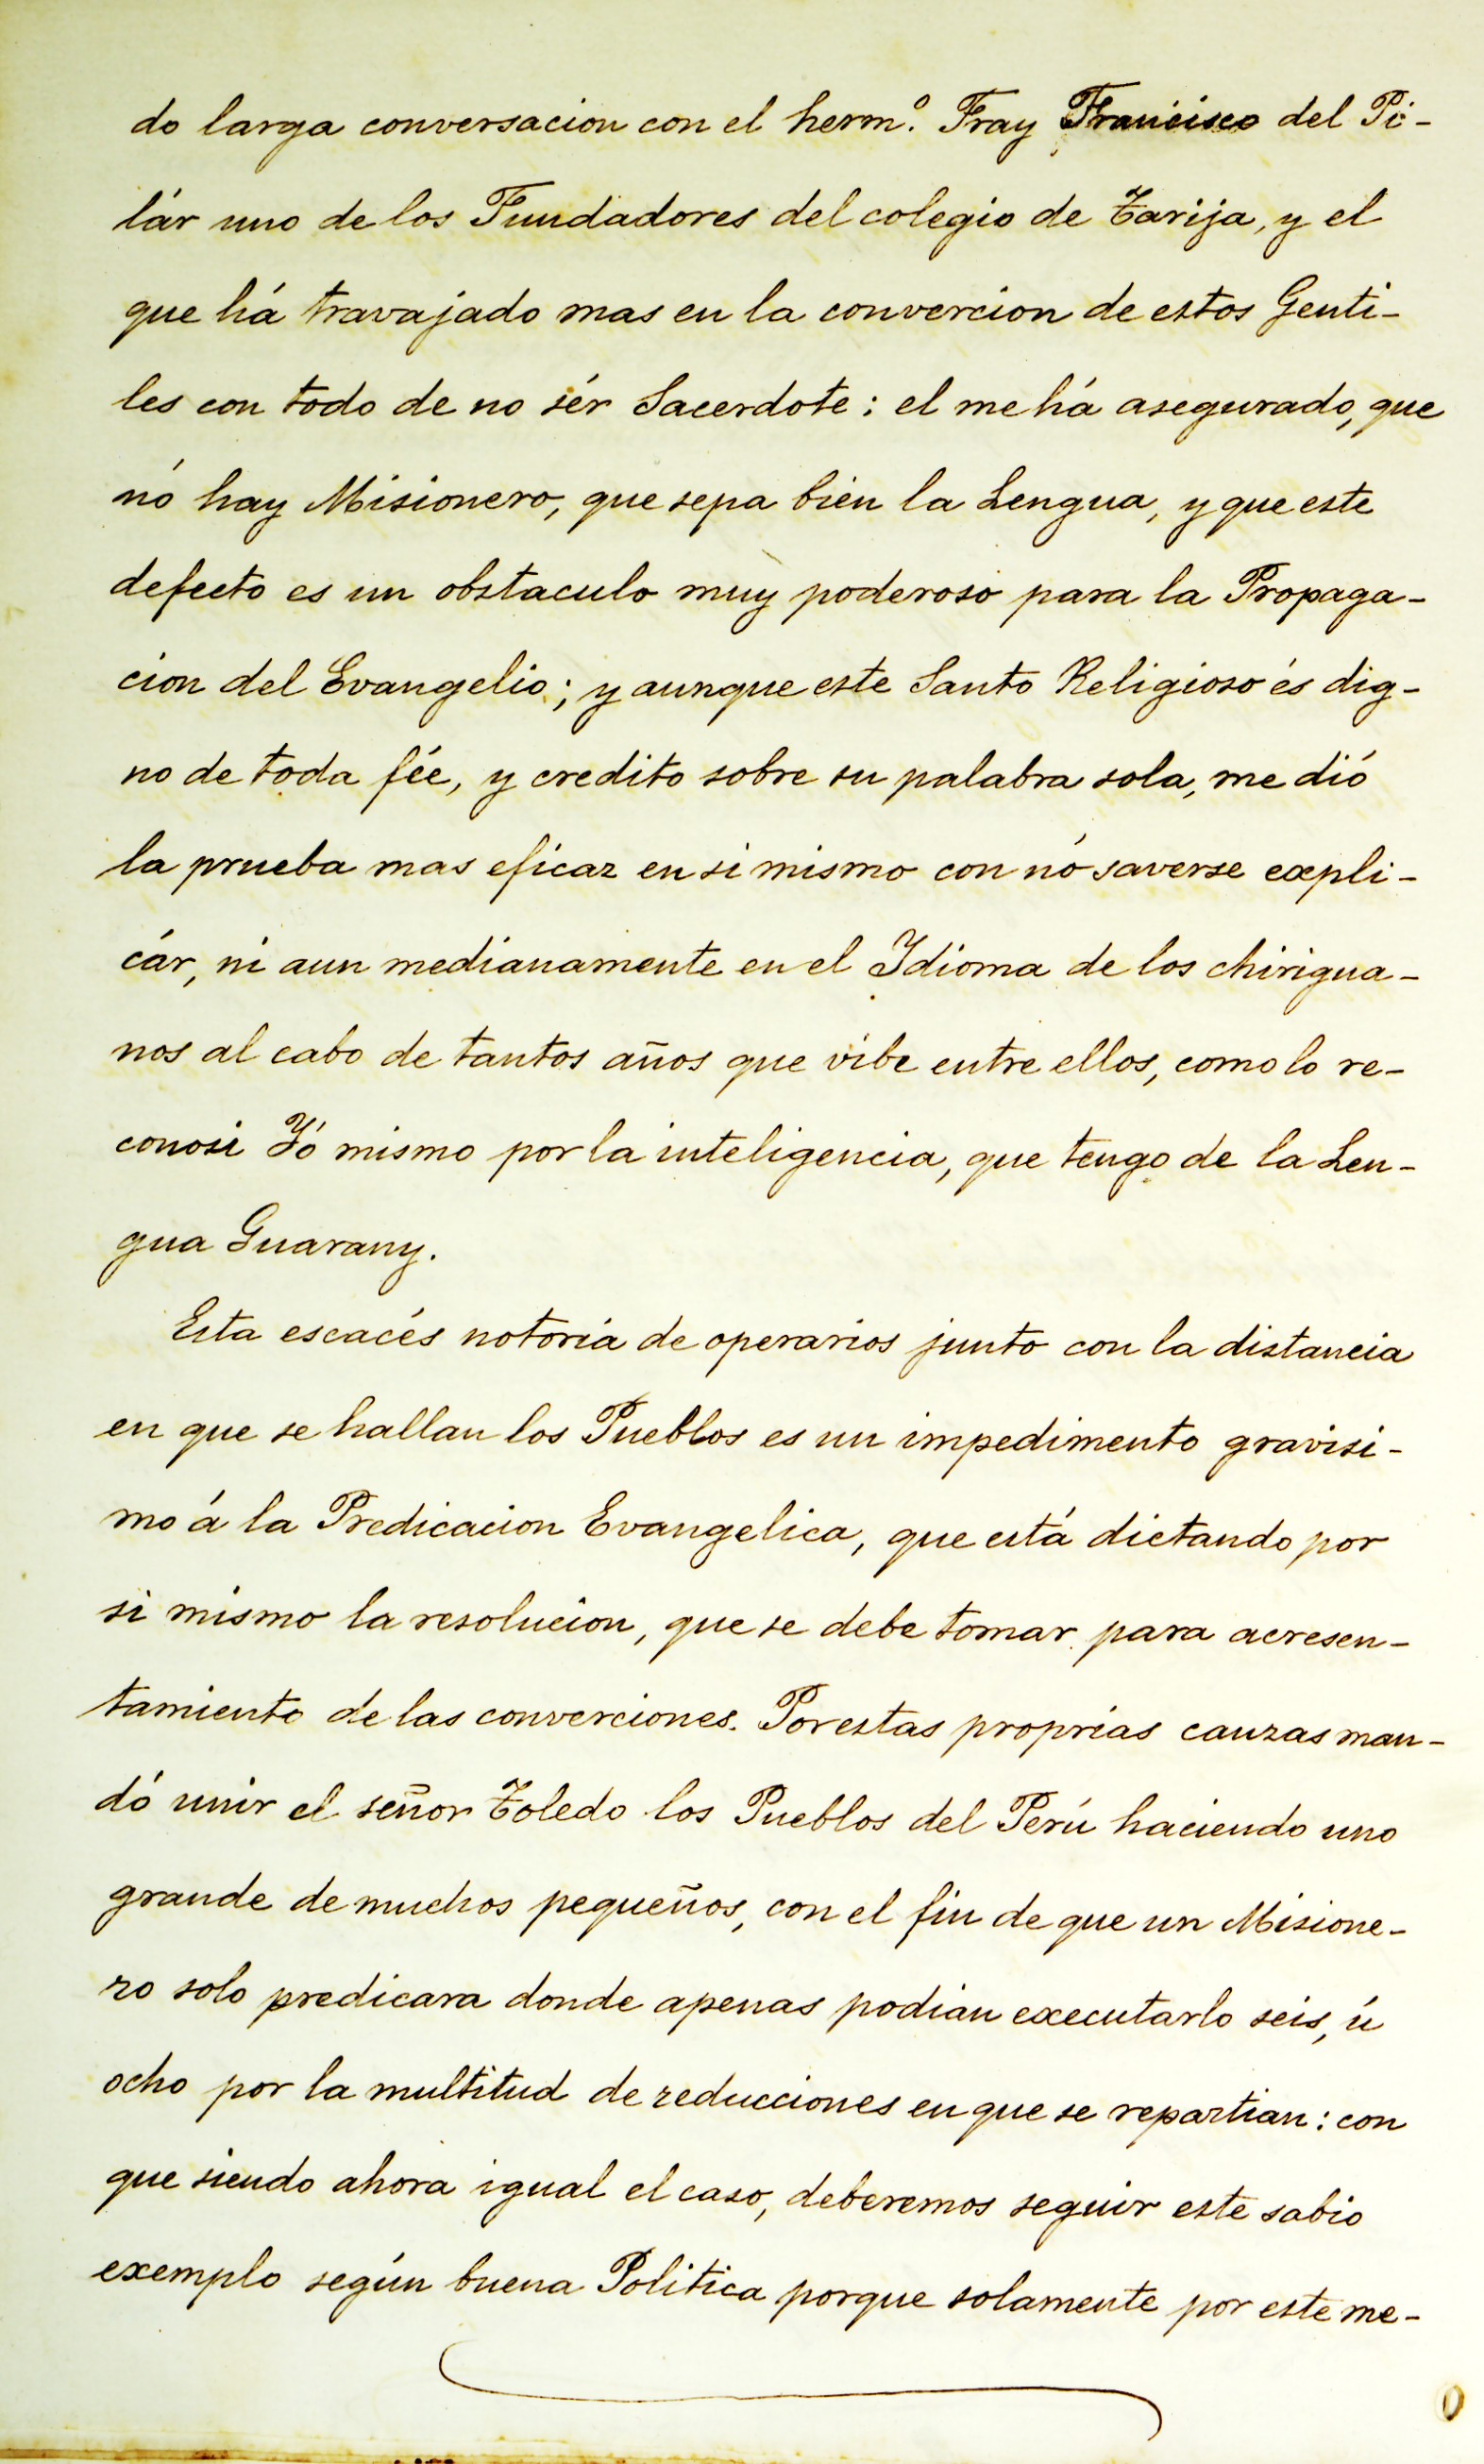 do larga conversacion con el herm.º Fray Francisco del Pi-
lár uno de los Fundadores del colegio de Tarija, y el
que há travajado mas en la convercion de estos Genti-
les con todo de no sér Sacerdote: el me há asegurado, que
nó hay Misionero, que sepa bien la Lengua, y que este
defecto es un obstaculo muy poderoso para la Propaga-
cion del Evangelio; y aunque este Santo Religioso és dig-
no de toda fée, y credito sobre su palabra sola, me dió
la prueba mas eficaz en si mismo con nó saverse expli-
cár, ni aun medianamente en el Idioma de los chirigua-
nos al cabo de tantos años que vibe entre ellos, como lo re-
conosi Yó mismo por la inteligencia, que tengo de la Len-
gua Guarany.
Esta escacés notoria de operarios junto con la distancia
en que se hallan los Pueblos es un impedimento gravisi-
mo á la Predicacion Evangelica, que está dictando por
si mismo la resolucion, que se debe tomar para acresen-
tamiento de las converciones. Por estas proprias cauzas man-
dó unir el señor Toledo los Pueblos del Perú haciendo uno
grande de muchos pequeños, con el fin de que un Misione-
ro solo predicara donde apenas podian executarlo seis, ú
ocho por la multitud de reducciones en que se repartian: con
que siendo ahora igual el caso, deberemos seguir este sabio
exemplo según buena Politica porque solamente por este me-